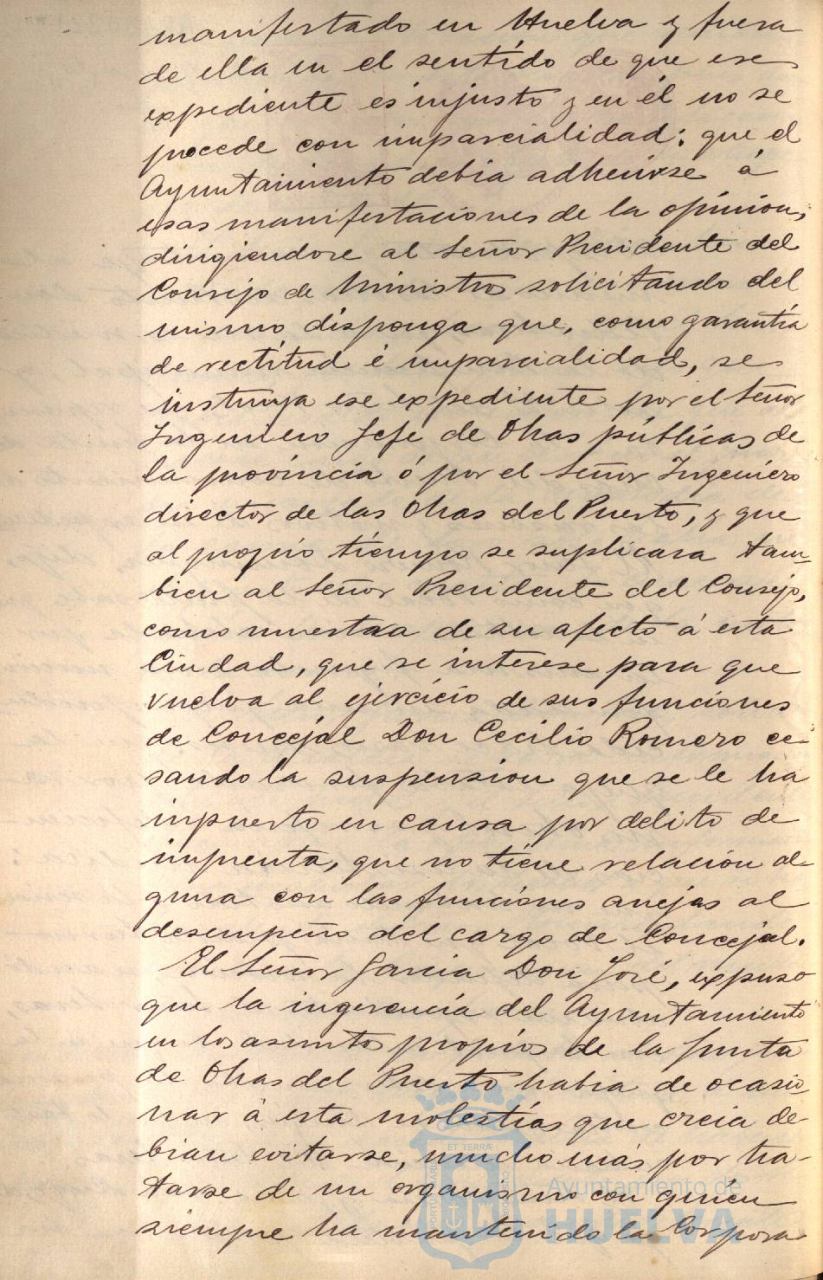 manifestado en Huelva y fuera
de ella en el sentido de que ese
expediente es injusto y en él no se
procede con imparcialidad: que el
Ayuntamiento debia adherirse á
esas manifestaciones de la opinion,
dirigiendose al Señor Presidente del
Consejo de Ministros solicitando del
mismo disponga que, como garantía
de rectitud é imparcialidad, se
instruya ese expediente por el Señor
Ingeniero Jefe de Obras públicas de
la provincia ó por el Señor Ingeniero
director de las Obras del Puerto, y que
al propio tiempo se suplicara tam-
bien al Señor Presidente del Consejo,
como muestra de su afecto á esta
Ciudad, que se interese para que
vuelva al ejercicio de sus funciones
de Concejal Don Cecilio Romero ce-
sando la suspension que se le ha
inpuesto en causa por delito de
imprenta, que no tiene relación al-
guna con las funciones anejas al
desempeño del cargo de Concejal.
El Señor Garcia Don José, expuso
que la ingerencia del Ayuntamiento
en los asuntos propios de la Junta
de Obras del Puerto habia de ocasio-
nar á esta molestias que creia de-
bian evitarse, mucho más por tra-
tarse de un organismo con quien
siempre ha mantenido la Corpora-
Ayuntamiento de
HUELVA